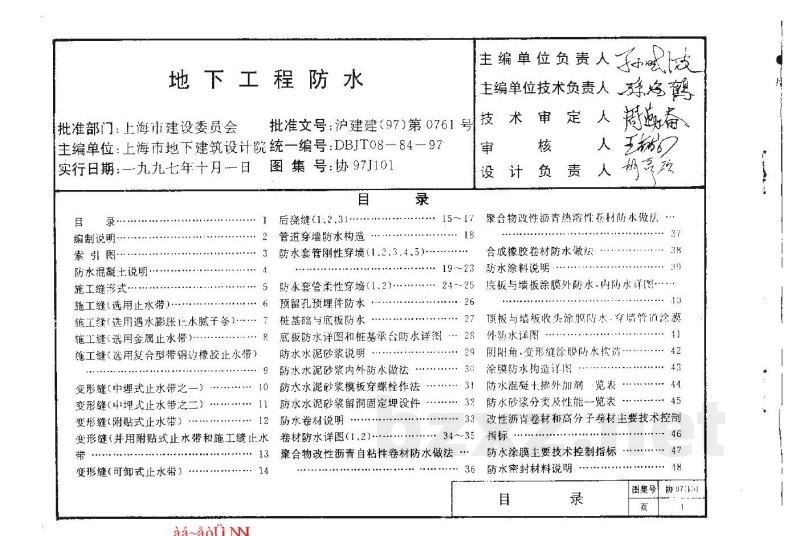 地下工程防水
批准部门:上海市建设委员会 批准文号:沪建建(97)第0761号
主编单位:上海市地下建筑设计院 统一编号:DBJT08-84-97
实行日期:一九九七年十月一日 图集号:协97J101
主编单位负责人
主编单位技术负责人
技术审定人
审核人
设计负责人
目录
目录 1
编制说明 2
索引图 3
防水混凝土说明 4
施工缝形式 5
施工缝(选用止水带) 6
施工缝(选用遇水膨胀止水腻子条) 7
施工缝(选用金属止水带) 8
施工缝(选用复合型带钢边橡胶止水带)
9
变形缝(中埋式止水带之一) 10
变形缝(中埋式止水带之二) 11
变形缝(附贴式止水带) 12
变形缝(并用附贴式止水带和施工缝止水
带 13
变形缝(可卸式止水带) 14
后浇缝(1,2,3) 15~17
管道穿墙防水构造 18
防水套管刚性穿墙(1,2,3,4,5)
19~23
防水套管柔性穿墙(1,2) 24~25
预留孔预埋件防水 26
桩基础与底板防水 27
底板防水详图和桩基承台防水详图 28
防水水泥砂浆说明 29
防水水泥砂浆内外防水做法 30
防水水泥砂浆模板穿螺栓作法 31
防水水泥砂浆留洞固定埋设件 32
防水卷材说明 33
卷材防水详图(1,2) 34~35
聚合物改性沥青自粘性卷材防水做法
36
聚合物改性沥青热溶性卷材防水做法
37
合成橡胶卷材防水做法 38
防水涂料说明 39
底板与墙板涂膜外防水、内防水详图
40
顶板与墙板收头涂膜防水、穿墙管道涂膜
外防水详图 41
阴阳角、变形缝涂膜防水构造 42
涂膜防水构造详图 43
防水混凝土掺外加剂一览表 44
防水砂浆分类及性能一览表 45
改性沥青卷材和高分子卷材主要技术控制
指标 46
防水涂膜主要技术控制指标 47
防水密封材料说明 48
目录
图集号 协97J101
页 1